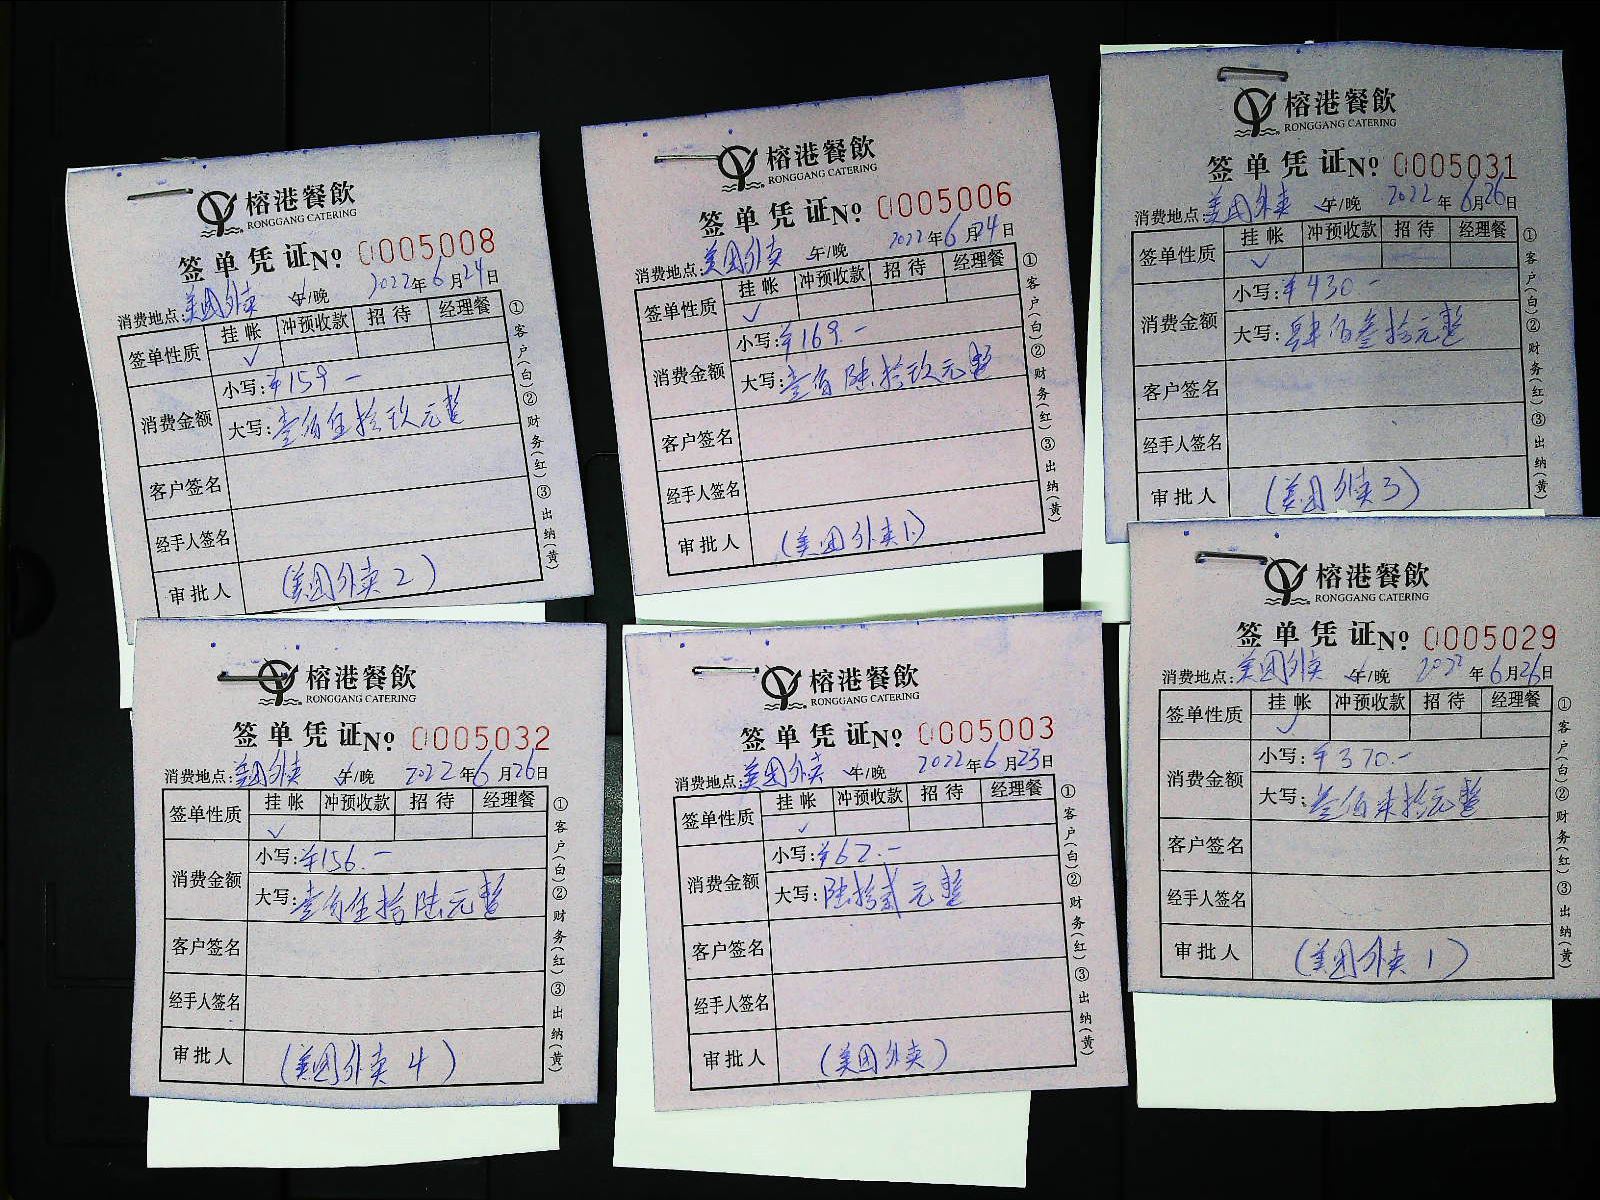 榕港餐飲
RONGGANG CATERING
签单凭证No 0005008
2022年6月24日
消费地点:美团外卖 午/晚
签单性质 挂帐 冲预收款 招待 经理餐
✓
消费金额 小写:¥159-
大写:壹佰伍拾玖元整
客户签名
经手人签名
审批人 (美团外卖2)
①客户(白)②财务(红)③出纳(黄)
榕港餐飲
RONGGANG CATERING
签单凭证No 0005006
消费地点:美团外卖 午/晚 2022年6月24日
签单性质 挂帐 冲预收款 招待 经理餐
✓
消费金额 小写:¥169.-
大写:壹佰陆拾玖元整
客户签名
经手人签名
审批人 (美团外卖1)
①客户(白)②财务(红)③出纳(黄)
榕港餐飲
RONGGANG CATERING
签单凭证No 0005031
消费地点:美团外卖 午/晚 2022年6月26日
签单性质 挂帐 冲预收款 招待 经理餐
✓
消费金额 小写:¥430-
大写:肆佰叁拾元整
客户签名
经手人签名
审批人 (美团外卖3)
①客户(白)②财务(红)③出纳(黄)
榕港餐飲
RONGGANG CATERING
签单凭证No 0005032
消费地点:美团外卖 午/晚 2022年6月26日
签单性质 挂帐 冲预收款 招待 经理餐
✓
消费金额 小写:¥156.-
大写:壹佰伍拾陆元整
客户签名
经手人签名
审批人 (美团外卖4)
①客户(白)②财务(红)③出纳(黄)
榕港餐飲
RONGGANG CATERING
签单凭证No 0005003
消费地点:美团外卖 午/晚 2022年6月23日
签单性质 挂帐 冲预收款 招待 经理餐
✓
消费金额 小写:¥62.-
大写:陆拾贰元整
客户签名
经手人签名
审批人 (美团外卖)
①客户(白)②财务(红)③出纳(黄)
榕港餐飲
RONGGANG CATERING
签单凭证No 0005029
消费地点:美团外卖 午/晚 2022年6月26日
签单性质 挂帐 冲预收款 招待 经理餐
✓
消费金额 小写:¥370.-
大写:叁佰柒拾元整
客户签名
经手人签名
审批人 (美团外卖1)
①客户(白)②财务(红)③出纳(黄)